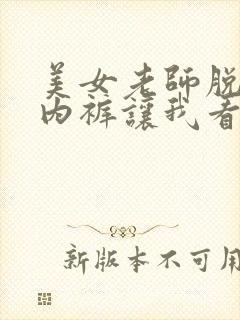 美女老師脱
内裤讓我看
新版本不可用